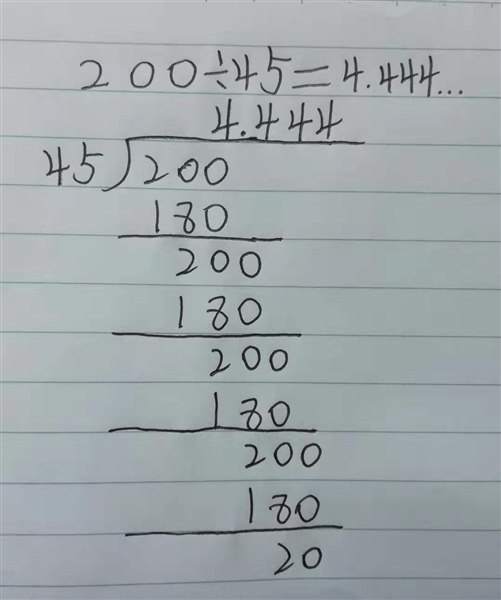 200÷45=4.444...
4.444
45)200
180
200
180
200
180
200
180
20